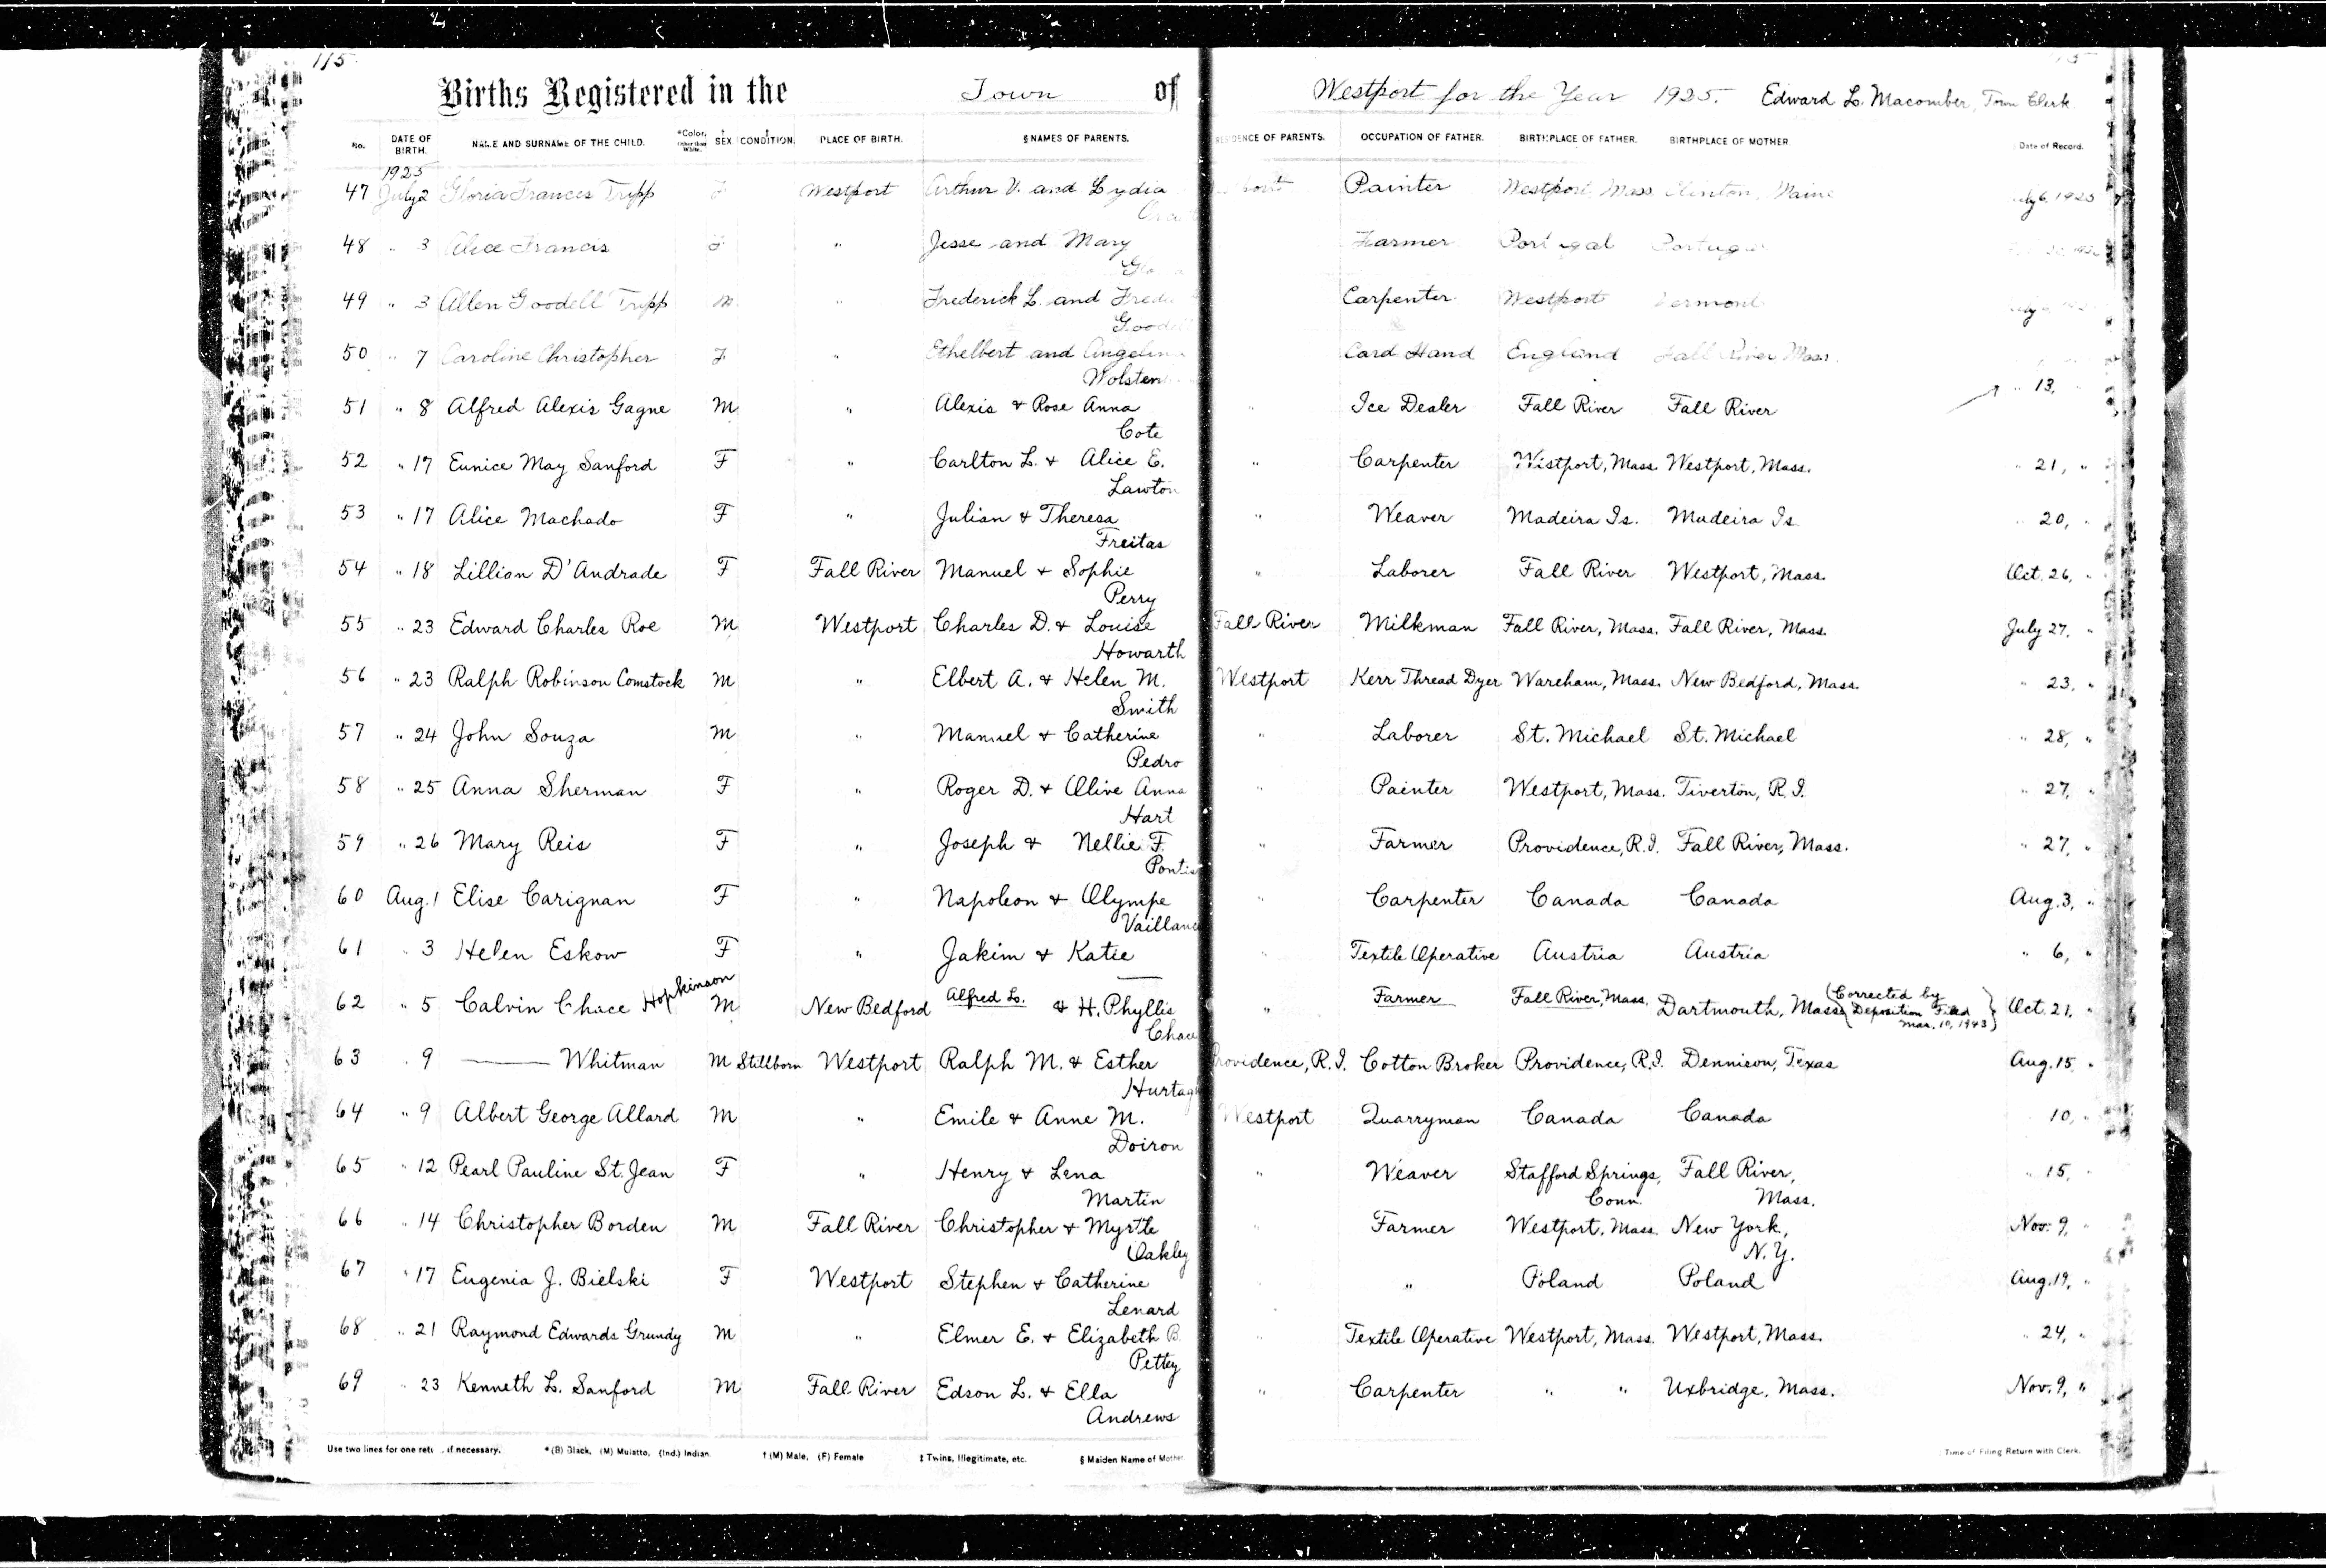 115
Births Registered in the Town of Westport for the Year 1925. Edward L. Macomber, Town Clerk
No. DATE OF BIRTH. NAME AND SURNAME OF THE CHILD. *Color, Other than White. † SEX ‡ CONDITION. PLACE OF BIRTH. § NAMES OF PARENTS. RESIDENCE OF PARENTS. OCCUPATION OF FATHER. BIRTHPLACE OF FATHER. BIRTHPLACE OF MOTHER Date of Record.
1925
47 July 2 Gloria Frances Tripp F Westport Arthur V. and Lydia Painter Westport Mass Clinton, Maine July 6, 1925
48 " 3 Alice Francis F " Jesse and Mary Farmer Portugal Portugal
49 " 3 Allen Goodell Tripp M " Frederick L. and Carpenter Westport Vermont
Goodell
50 " 7 Caroline Christopher F " Ethelbert and Angelina Card Hand England Fall River Mass.
51 " 8 Alfred Alexis Gagne M " Alexis & Rose Anna " Ice Dealer Fall River Fall River " 13, "
Cote
52 " 17 Eunice May Sanford F " Carlton L. & Alice E. " Carpenter Westport, Mass. Westport, Mass. " 21, "
Lawton
53 " 17 Alice Machado F " Julian & Theresa " Weaver Madeira Is. Madeira Is. " 20, "
Freitas
54 " 18 Lillian D'Andrade F Fall River Manuel & Sophie " Laborer Fall River Westport, Mass. Oct. 26, "
Perry
55 " 23 Edward Charles Roe M Westport Charles D. & Louise Fall River Milkman Fall River, Mass. Fall River, Mass. July 27, "
Howarth
56 " 23 Ralph Robinson Comstock M " Elbert A. & Helen M. Westport Kerr Thread Dyer Wareham, Mass. New Bedford, Mass. " 23, "
Smith
57 " 24 John Souza M " Manuel & Catherine " Laborer St. Michael St. Michael " 28, "
Pedro
58 " 25 Anna Sherman F " Roger D. & Olive Anna " Painter Westport, Mass. Tiverton, R.I. " 27, "
Hart
59 " 26 Mary Reis F " Joseph & Nellie F. " Farmer Providence, R.I. Fall River, Mass. " 27, "
60 Aug. 1 Elise Carignan F " Napoleon & Olympe " Carpenter Canada Canada Aug. 3, "
61 " 3 Helen Eskow F " Jakim & Katie " Textile Operative Austria Austria " 6, "
62 " 5 Calvin Chace Hopkinson M New Bedford Alfred L. & H. Phyllis " Farmer Fall River, Mass. Dartmouth, Mass. (Corrected by Deposition Filed Mar. 10, 1943) Oct. 21, "
Chace
63 " 9 —— Whitman M Stillborn Westport Ralph M. & Esther Providence, R.I. Cotton Broker Providence, R.I. Dennison, Texas Aug. 15, "
64 " 9 Albert George Allard M " Emile & Anne M. Westport Quarryman Canada Canada 10, "
Doiron
65 " 12 Pearl Pauline St. Jean F " Henry & Lena " Weaver Stafford Springs, Fall River, " 15, "
Martin Conn. Mass.
66 " 14 Christopher Borden M Fall River Christopher & Myrtle " Farmer Westport, Mass. New York, Nov. 9, "
Oakley N.Y.
67 " 17 Eugenia J. Bielski F Westport Stephen & Catherine " Poland Poland Aug. 19, "
Lenard
68 " 21 Raymond Edwards Grundy M " Elmer E. & Elizabeth B. " Textile Operative Westport, Mass. Westport, Mass. " 24, "
Pettey
69 " 23 Kenneth L. Sanford M Fall River Edson L. & Ella " Carpenter " " Uxbridge, Mass. Nov. 9, "
Andrews
Use two lines for one return if necessary. *(B) Black, (M) Mulatto, (Ind.) Indian. †(M) Male, (F) Female ‡ Twins, Illegitimate, etc. § Maiden Name of Mother Time of Filing Return with Clerk.